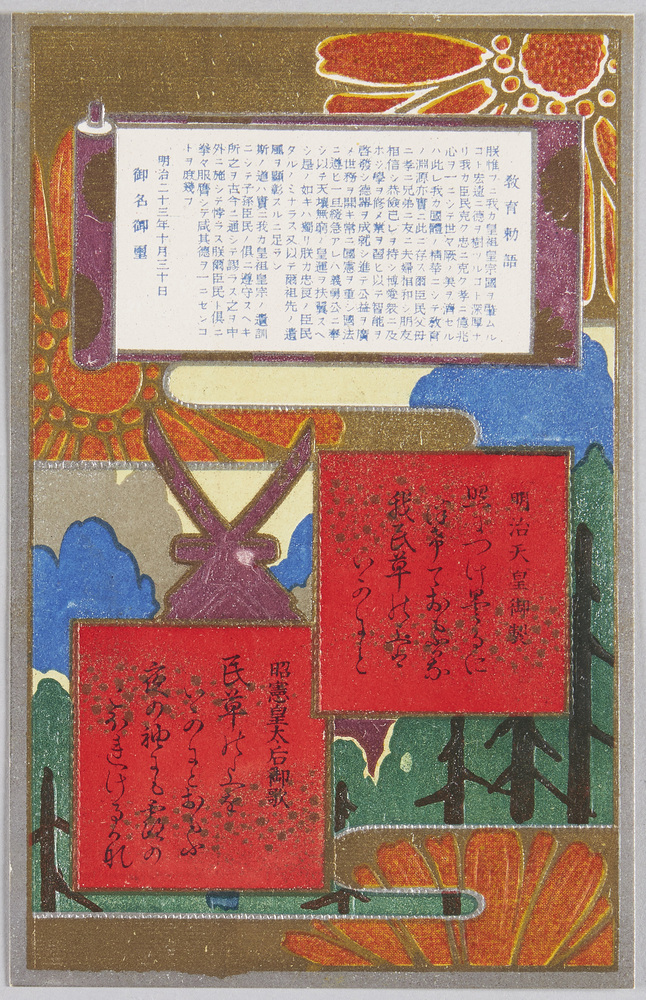 教育勅語
朕惟フニ我カ皇祖皇宗國ヲ肇ムル
コト宏遠ニ德ヲ樹ツルコト深厚ナ
リ我カ臣民克ク忠ニ克ク孝ニ億兆
心ヲ一ニシテ世々厥ノ美ヲ濟セル
ハ此レ我カ國體ノ精華ニシテ敎育
ノ淵源亦實ニ此ニ存ス爾臣民父母
ニ孝ニ兄弟ニ友ニ夫婦相和シ朋友
相信シ恭儉己レヲ持シ博愛衆ニ及
ホシ學ヲ修メ業ヲ習ヒ以テ智能ヲ
啓發シ德器ヲ成就シ進テ公益ヲ廣
メ世務ヲ開キ常ニ國憲ヲ重シ國法
ニ遵ヒ一旦緩急アレハ義勇公ニ奉
シ以テ天壤無窮ノ皇運ヲ扶翼スヘ
シ是ノ如キハ獨リ朕カ忠良ノ臣民
タルノミナラス又以テ爾祖先ノ遺
風ヲ顯彰スルニ足ラン
斯ノ道ハ實ニ我カ皇祖皇宗ノ遺訓
ニシテ子孫臣民ノ俱ニ遵守スヘキ
所之ヲ古今ニ通シテ謬ラス之ヲ中
外ニ施シテ悖ラス朕爾臣民ト俱ニ
拳々服膺シテ咸其德ヲ一ニセンコ
トヲ庶幾フ
明治二十三年十月三十日
御名御璽
明治天皇御製
照につけ曇るに
つけておもふかな
我民草の上は
いかにと
昭憲皇太后御歌
民草の上を
いかにとおもふ
夜の袖にも露の